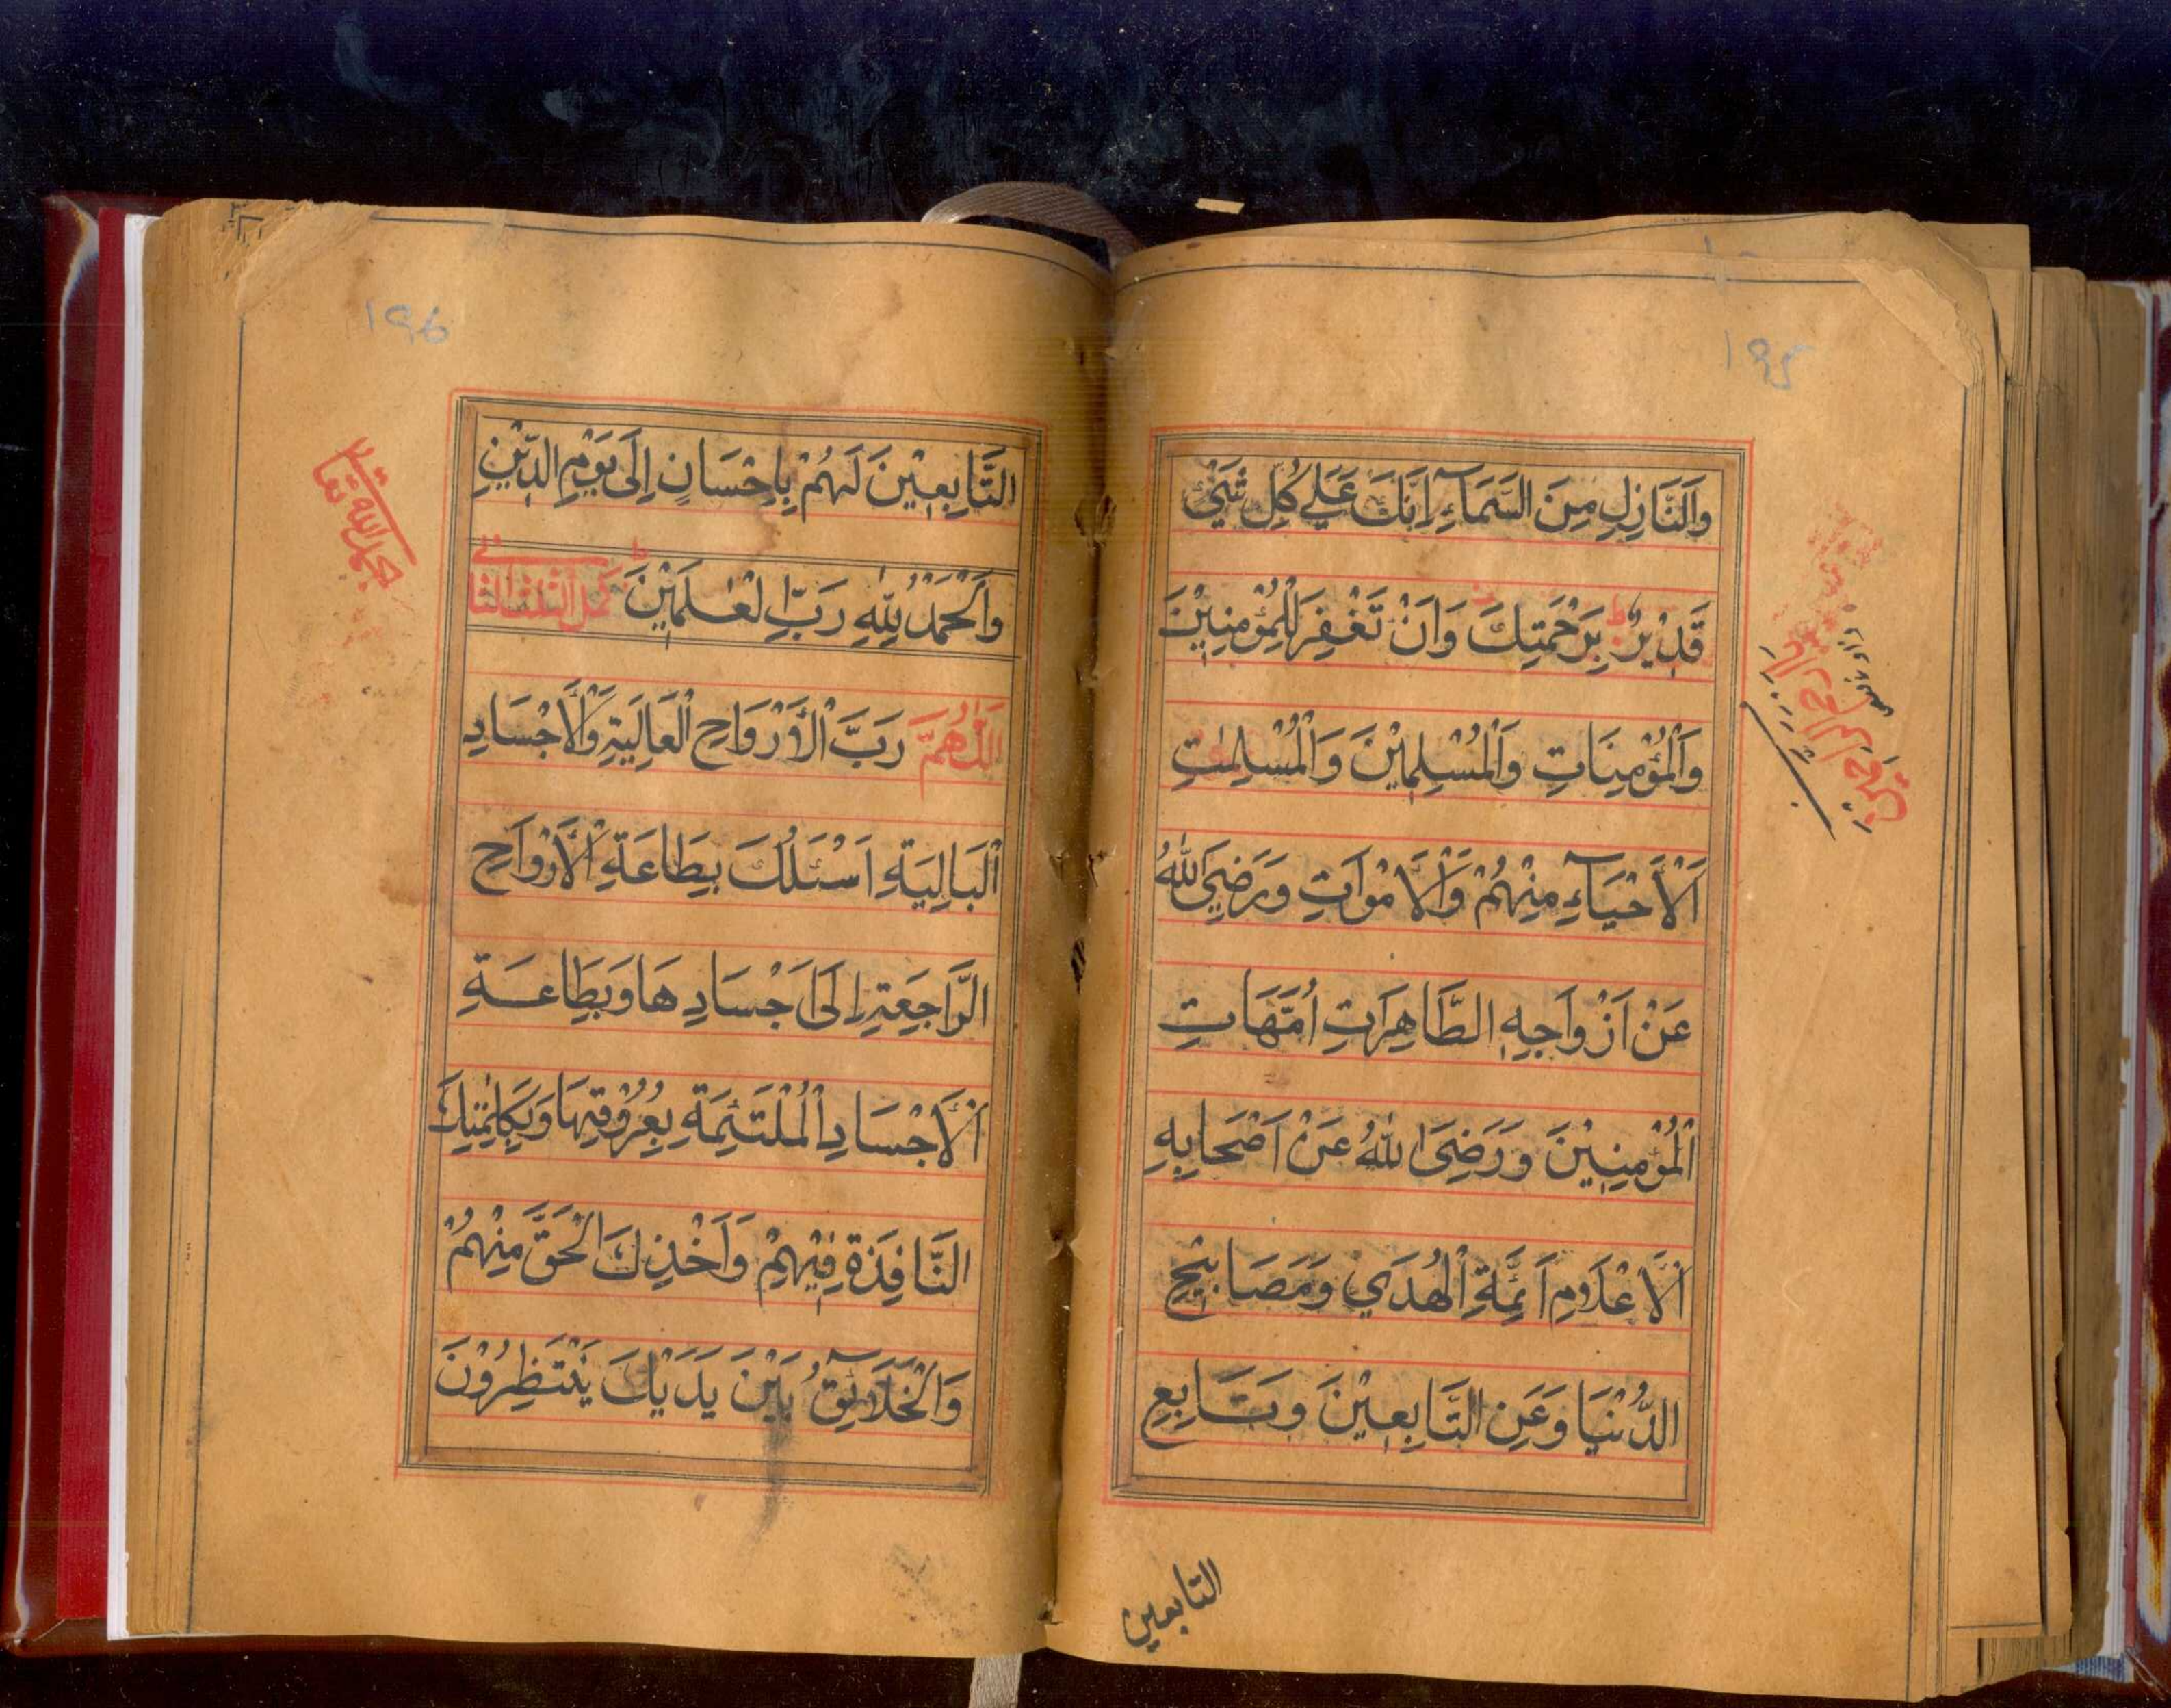 ١٩٥
وَالنَّازِلِ مِنَ السَّمَآءِ اِنَّكَ عَلٰے كُلِّ شَيْئٍ
قَدِيْرٌ ط بِرَحْمَتِكَ وَاَنْ تَغْفِرَ لِلْمُؤْمِنِيْنَ
وَالْمُؤْمِنَاتِ وَالْمُسْلِمِيْنَ وَالْمُسْلِمٰتِ
اَلْاَحْيَآءِ مِنْهُمْ وَالْاَمْوَاتِ وَرَضِيَ اللّٰهُ
عَنْ اَزْوَاجِهِ الطَّاهِرَاتِ اُمَّهَاتِ
الْمُؤْمِنِيْنَ وَرَضِيَ اللّٰهُ عَنْ اَصْحَابِهِ
الْاَعْلَامِ اَئِمَّةِ الْهُدَي وَمَصَابِيْحِ
الدُّنْيَا وَعَنِ التَّابِعِيْنَ وَتَابِعِ
التابعين
١٩٦
التَّابِعِيْنَ لَهُمْ بِاِحْسَانٍ اِلَى يَوْمِ الدِّيْنِ
وَالْحَمْدُ لِلّٰهِ رَبِّ الْعٰلَمِيْنَ ط كمل الثلث الثانی
بحمد الله تعالى
اَللّٰهُمَّ رَبَّ الْاَرْوَاحِ الْعَالِيَةِ وَالْاَجْسَادِ
الْبَالِيَةِ اَسْئَلُكَ بِطَاعَةِ الْاَرْوَاحِ
الرَّاجِعَةِ اِلَى اَجْسَادِهَا وَبِطَاعَةِ
الْاَجْسَادِ الْمُلْتَئِمَةِ بِعُرُوْقِهَا وَبِكَلِمٰتِكَ
النَّافِذَةِ فِيْهِمْ وَاَخْذِكَ الْحَقَّ مِنْهُمْ
وَالْخَلَآئِقُ بَيْنَ يَدَيْكَ يَنْتَظِرُوْنَ